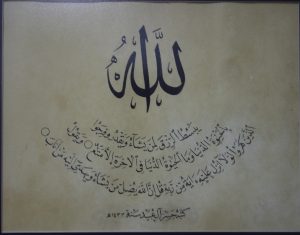 الله
يَبْسُطُ الرِّزْقَ لِمَنْ يَشَاءُ وَيَقْدِرُ وَفَرِحُوا
بِالْحَيٰوةِ الدُّنْيَا وَمَا الْحَيٰوةُ الدُّنْيَا فِي الْآخِرَةِ إِلَّا مَتَاعٌ وَيَقُولُ
الَّذِينَ كَفَرُوا لَوْلَا أُنْزِلَ عَلَيْهِ آيَةٌ مِنْ رَبِّهِ قُلْ إِنَّ اللّٰهَ يُضِلُّ مَنْ يَشَاءُ وَيَهْدِي إِلَيْهِ مَنْ أَنَابَ
كتبه سنة ١٤٣٣هـ